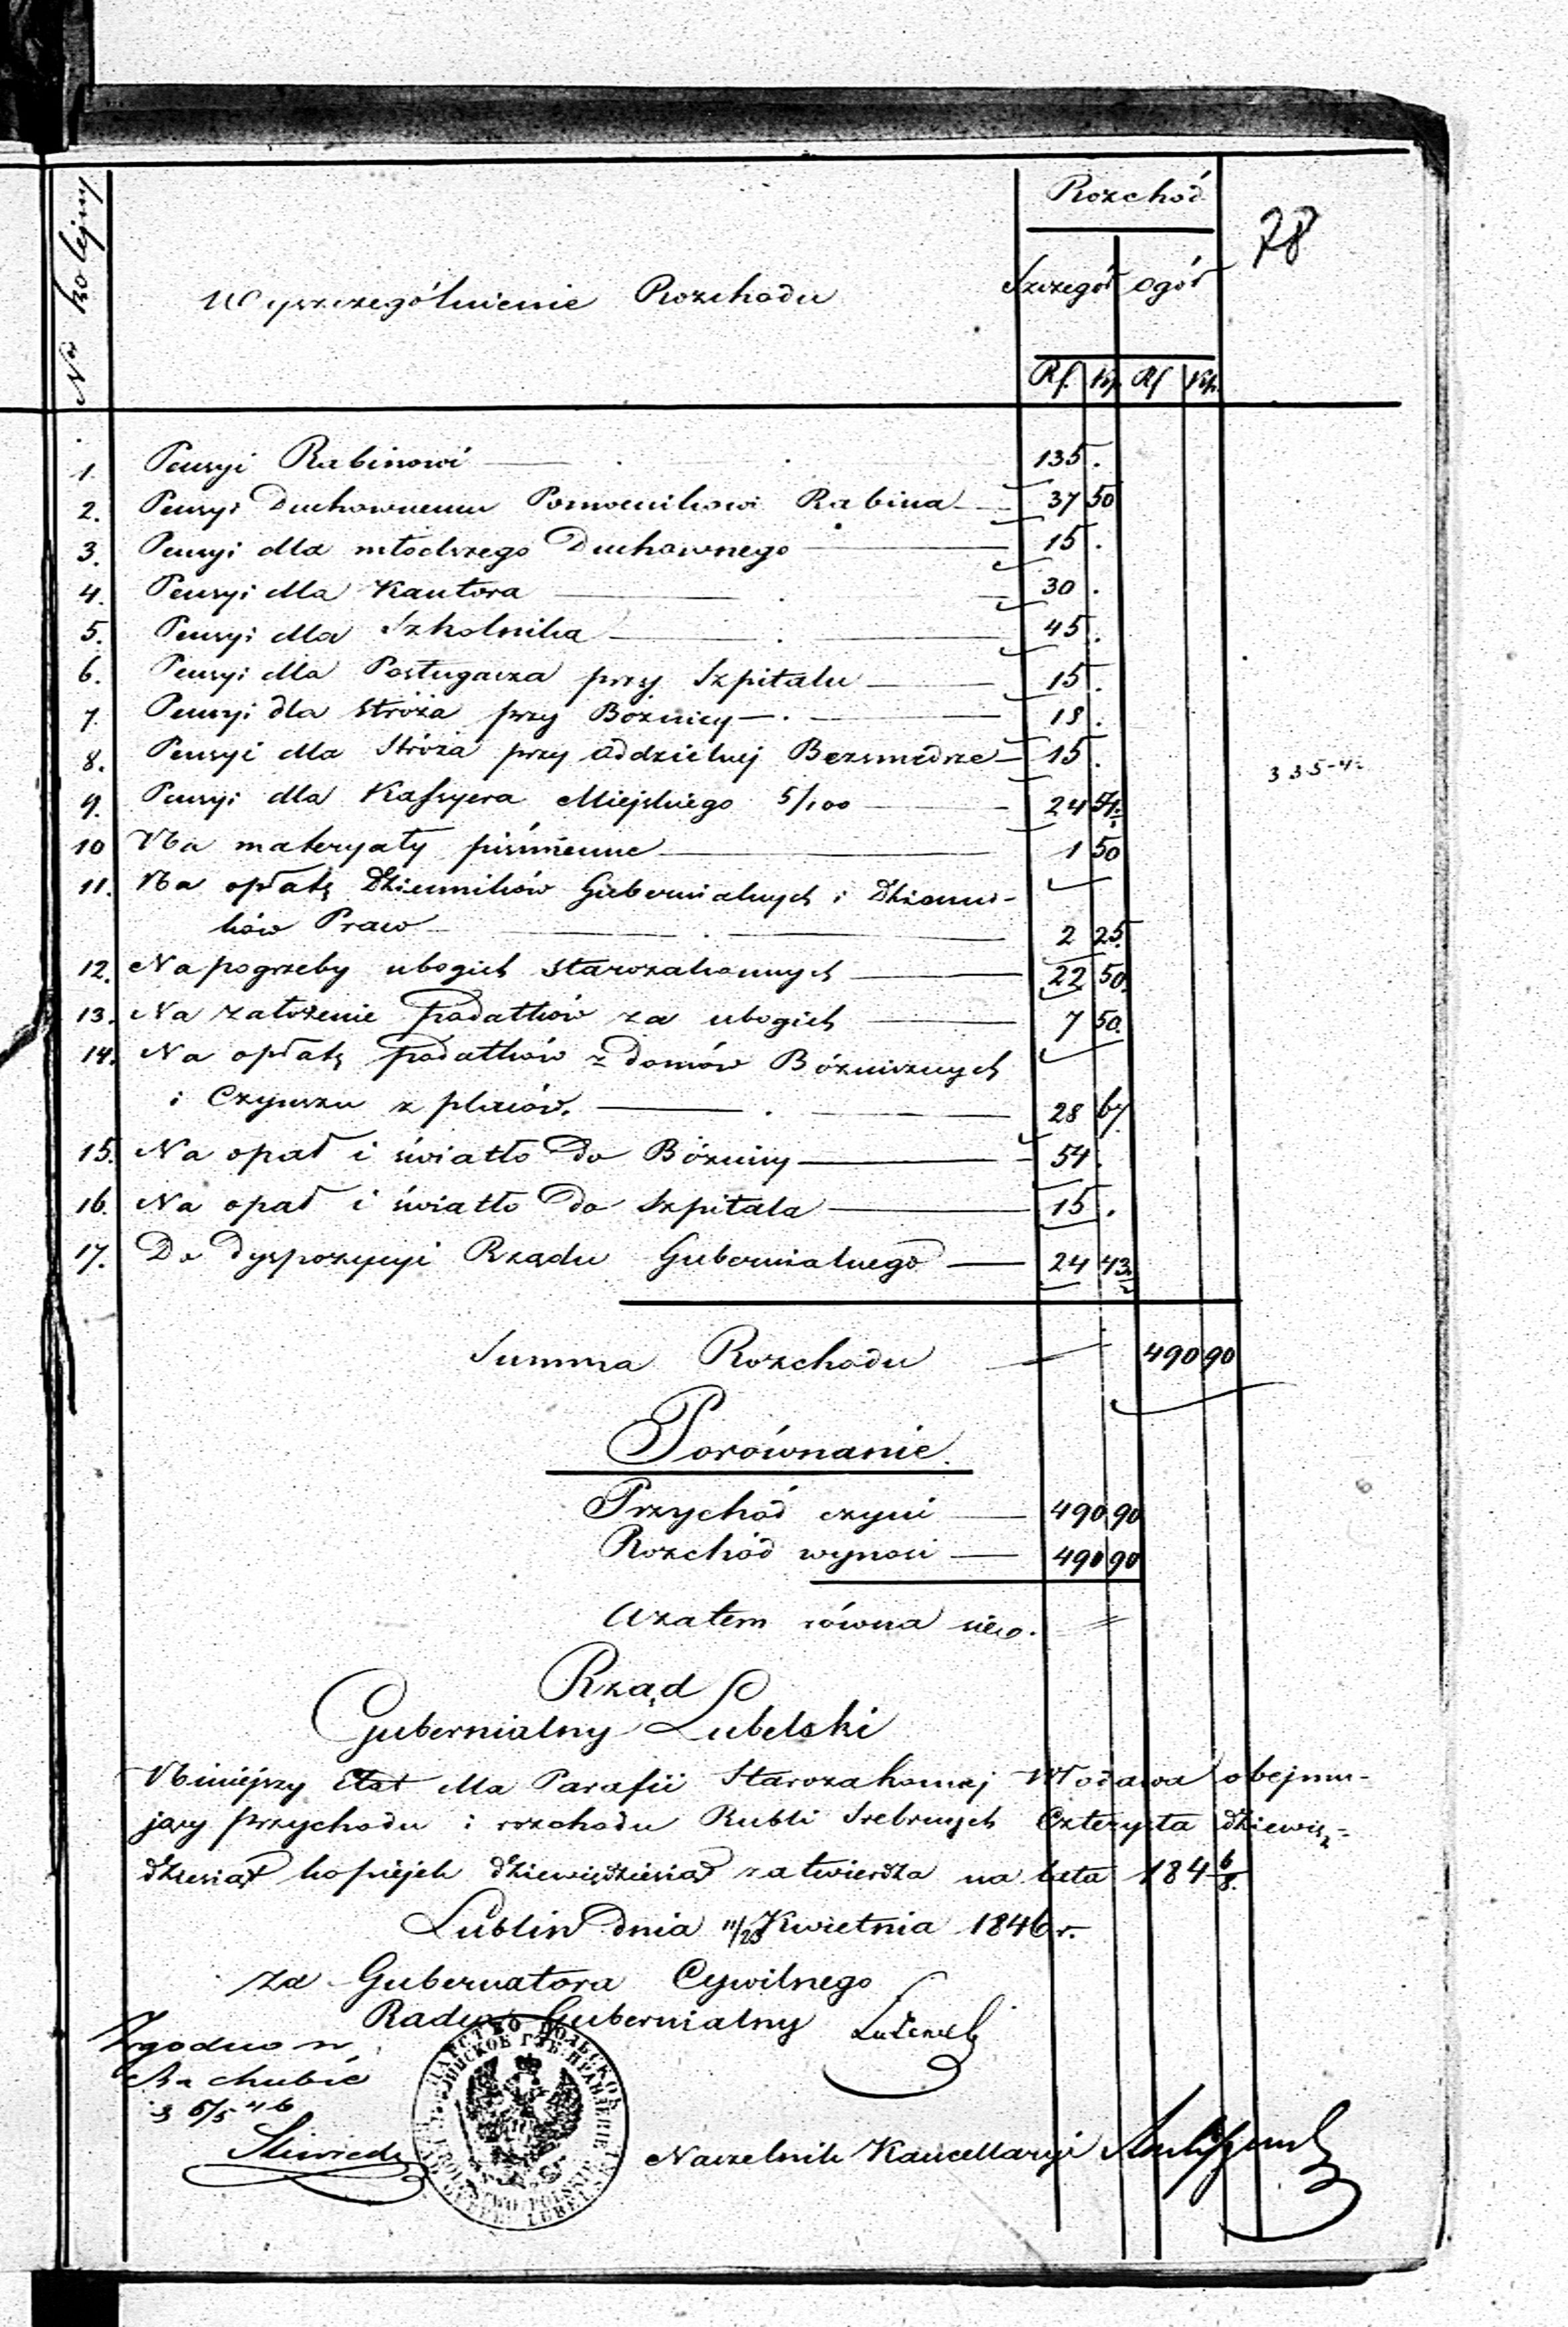 No kolejny
Wyszczególnienie Rozchodu
Rozchód
78
Szczegół ogół
Rf. kp. Rf kp.
1. Pensyi Rabinowi 135 .
2. Pensyi Duchownemu Pomocnikowi Rabina 37 50
3. Pensyi dla młodszego Duchownego 15 .
4. Pensyi dla Kantora 30 .
5. Pensyi dla Szkolnika 45 .
6. Pensyi dla Posługacza przy Szpitalu 15 .
7. Pensyi dla stróża przy Bożnicy 18 .
8. Pensyi dla Stróża przy oddzielnej Bezmedrze 15 .
335-4
9. Pensyi dla Kassyera Miejskiego 5/100 24 54
10 Na materyały piśmienne 1 50
11. Na opłatę Dzienników Gubernialnych i Dzienni-
ków Praw 2 25.
12. Na pogrzeby ubogich starozakonnych 22 50.
13. Na założenie podatków za ubogich 7 50.
14. Na opłatę podatków z domów Bóżniczych
i Czynszu z placów. 28 67
15. Na opał i światło do Bóżnicy 54 .
16. Na opał i światło do Szpitala 15 .
17. Do dyspozycyi Rządu Gubernialnego 24 43.
Summa Rozchodu 490 90
Porównanie.
Przychód czyni 490 90
Rozchód wynosi 490 90
A zatem równa się.
Rząd
Gubernialny Lubelski
Niniejszy Etat dla Parafii Starozakonnej Włodawa obejmu-
jący przychodu i rozchodu Rubli Srebrnych Czterysta dziewię-
dziesiąt kopiejek dziewiędziesiąt zatwierdza na lata 184 6/8.
Lublin dnia 11/23 Kwietnia 1846 r.
za Gubernatora Cywilnego
Radca Gubernialny
Zgodno w
Rachubie
Naczelnik Kancellaryi